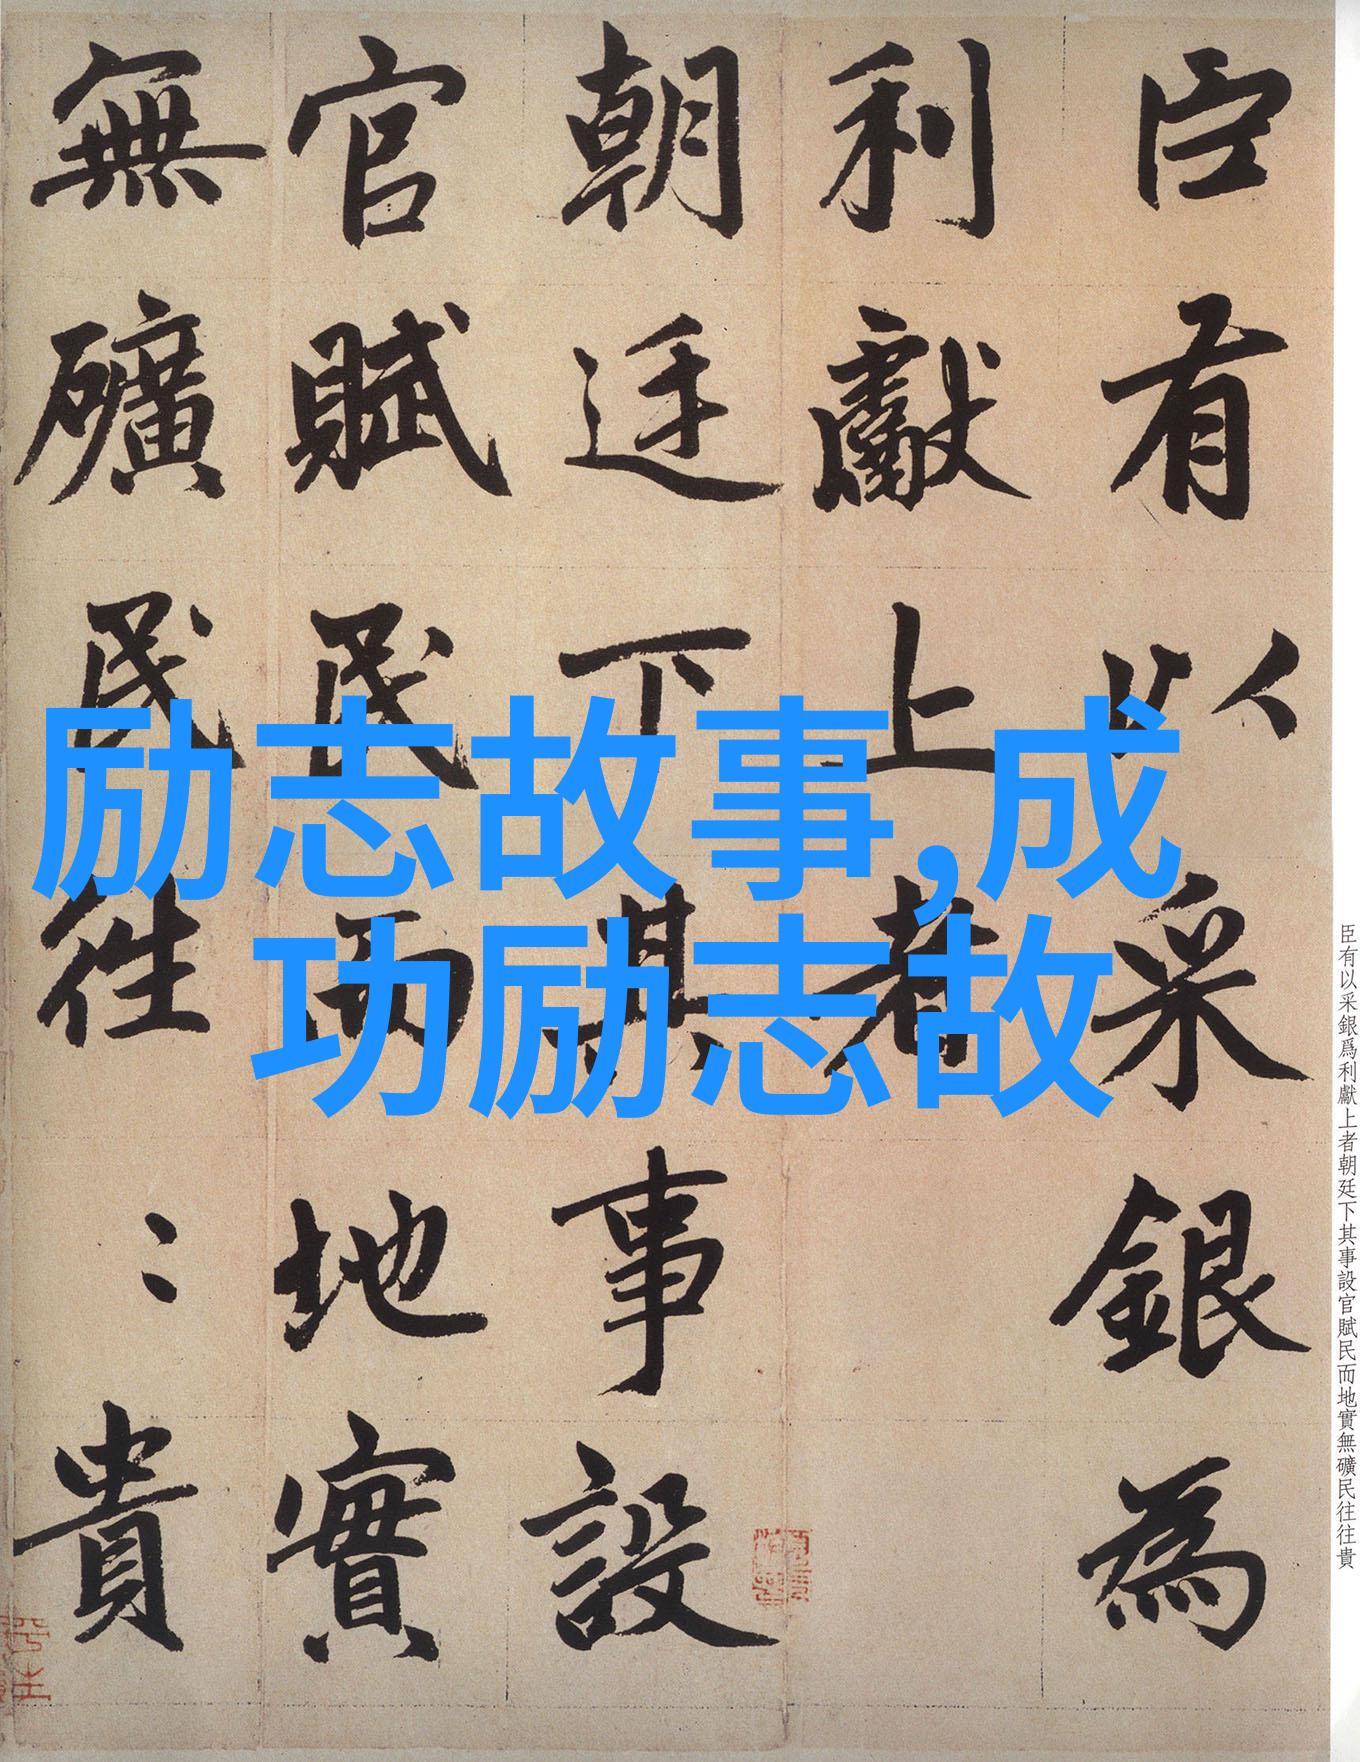 臣有以采銀為
利獻上者
朝廷下其事設
官賦民而地實
無礦民往〻貴
励志故事,成
功励志故
臣有以采銀爲利獻上者朝廷下其事設官賦民而地實無礦民往往貴